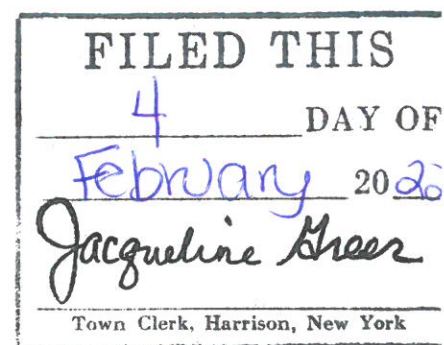 FILED THIS
4 DAY OF
February 2020
Jacqueline Greer
Town Clerk, Harrison, New York